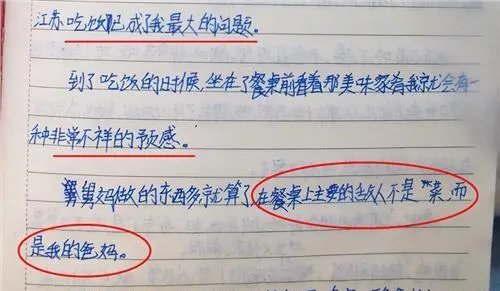 江苏吃饭已成了我最大的问题。
到了吃饭的时候,坐在了餐桌前看着那美味家肴我就会有一
种非常不祥的预感。
舅舅妈做的东西多就算了,在餐桌上主要的敌人不是"菜,而
是我的爸妈。